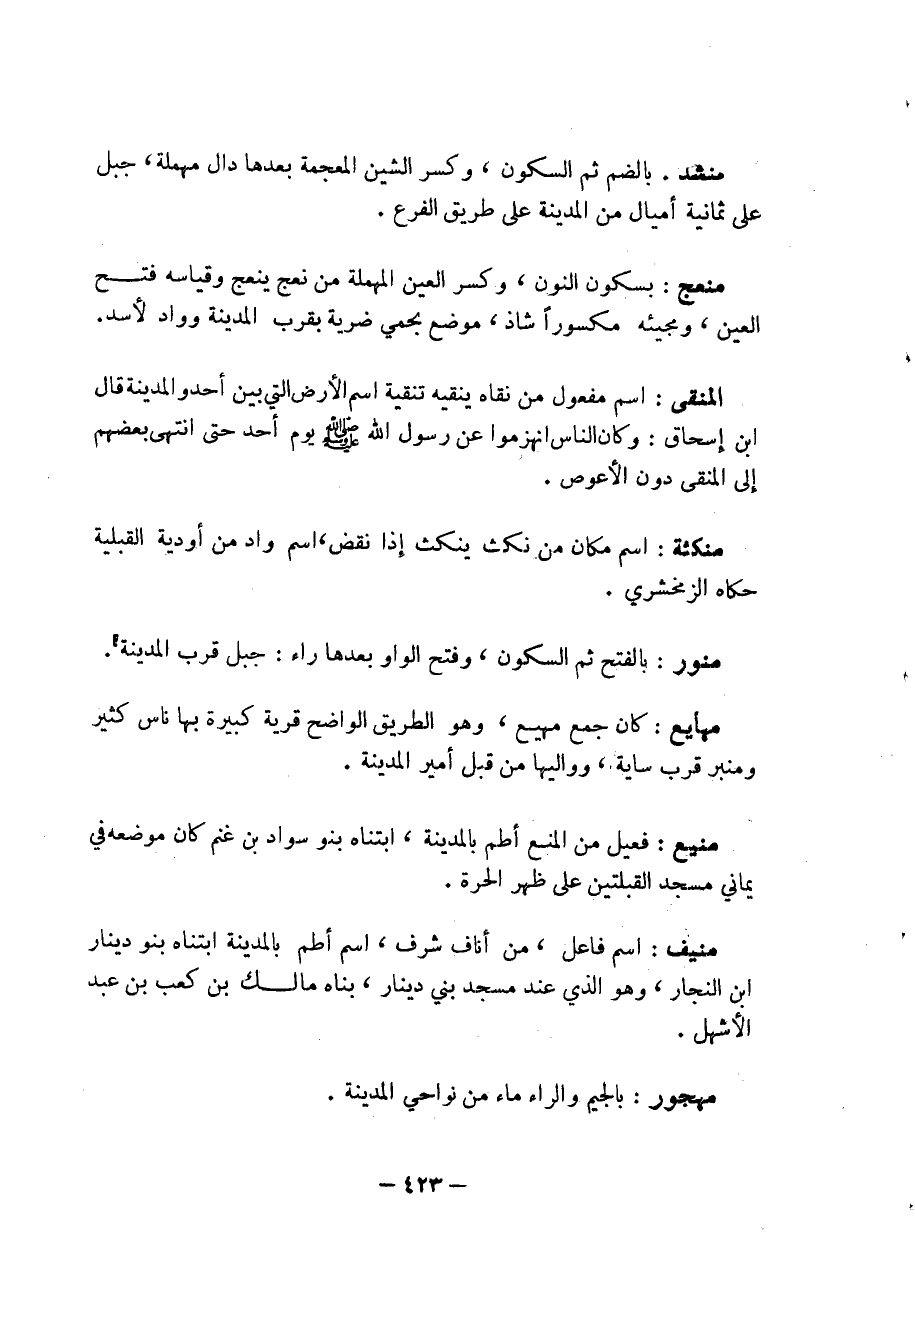 منشد . بالضم ثم السكون ، وكسر الشين المعجمة بعدها دال مهملة ، جبل
على ثمانية أميال من المدينة على طريق الفرع .
منعج : بسكون النون ، وكسر العين المهملة من نعج ينعج وقياسه فتـــح
العين ، ومجيئه مكسوراً شاذ ، موضع بحمي ضرية بقرب المدينة وواد لأسد.
المنقى : اسم مفعول من نقاه ينقيه تنقية اسم الأرض التي بين أحد والمدينة قال
ابن إسحاق : وكان الناس انهزموا عن رسول الله ﷺ يوم أحد حتى انتهى بعضهم
إلى المنقى دون الأعوص .
منكثة : اسم مكان من نكث ينكث إذا نقض ، اسم واد من أودية القبلية
حكاه الزمخشري .
منور : بالفتح ثم السكون ، وفتح الواو بعدها راء : جبل قرب المدينة .
مهايع : كان جمع مهيع ، وهو الطريق الواضح قرية كبيرة بها ناس كثير
ومنبر قرب ساية ، وواليها من قبل أمير المدينة .
منيع : فعيل من المنع أطم بالمدينة ، ابتناه بنو سواد بن غنم كان موضعه في
يماني مسجد القبلتين على ظهر الحرة .
منيف : اسم فاعل ، من أناف شرف ، اسم أطم بالمدينة ابتناه بنو دينار
ابن النجار ، وهو الذي عند مسجد بني دينار ، بناه مالـــك بن كعب بن عبد
الأشهل .
مهجور : بالجيم والراء ماء من نواحي المدينة .
– ٤٢٣ –